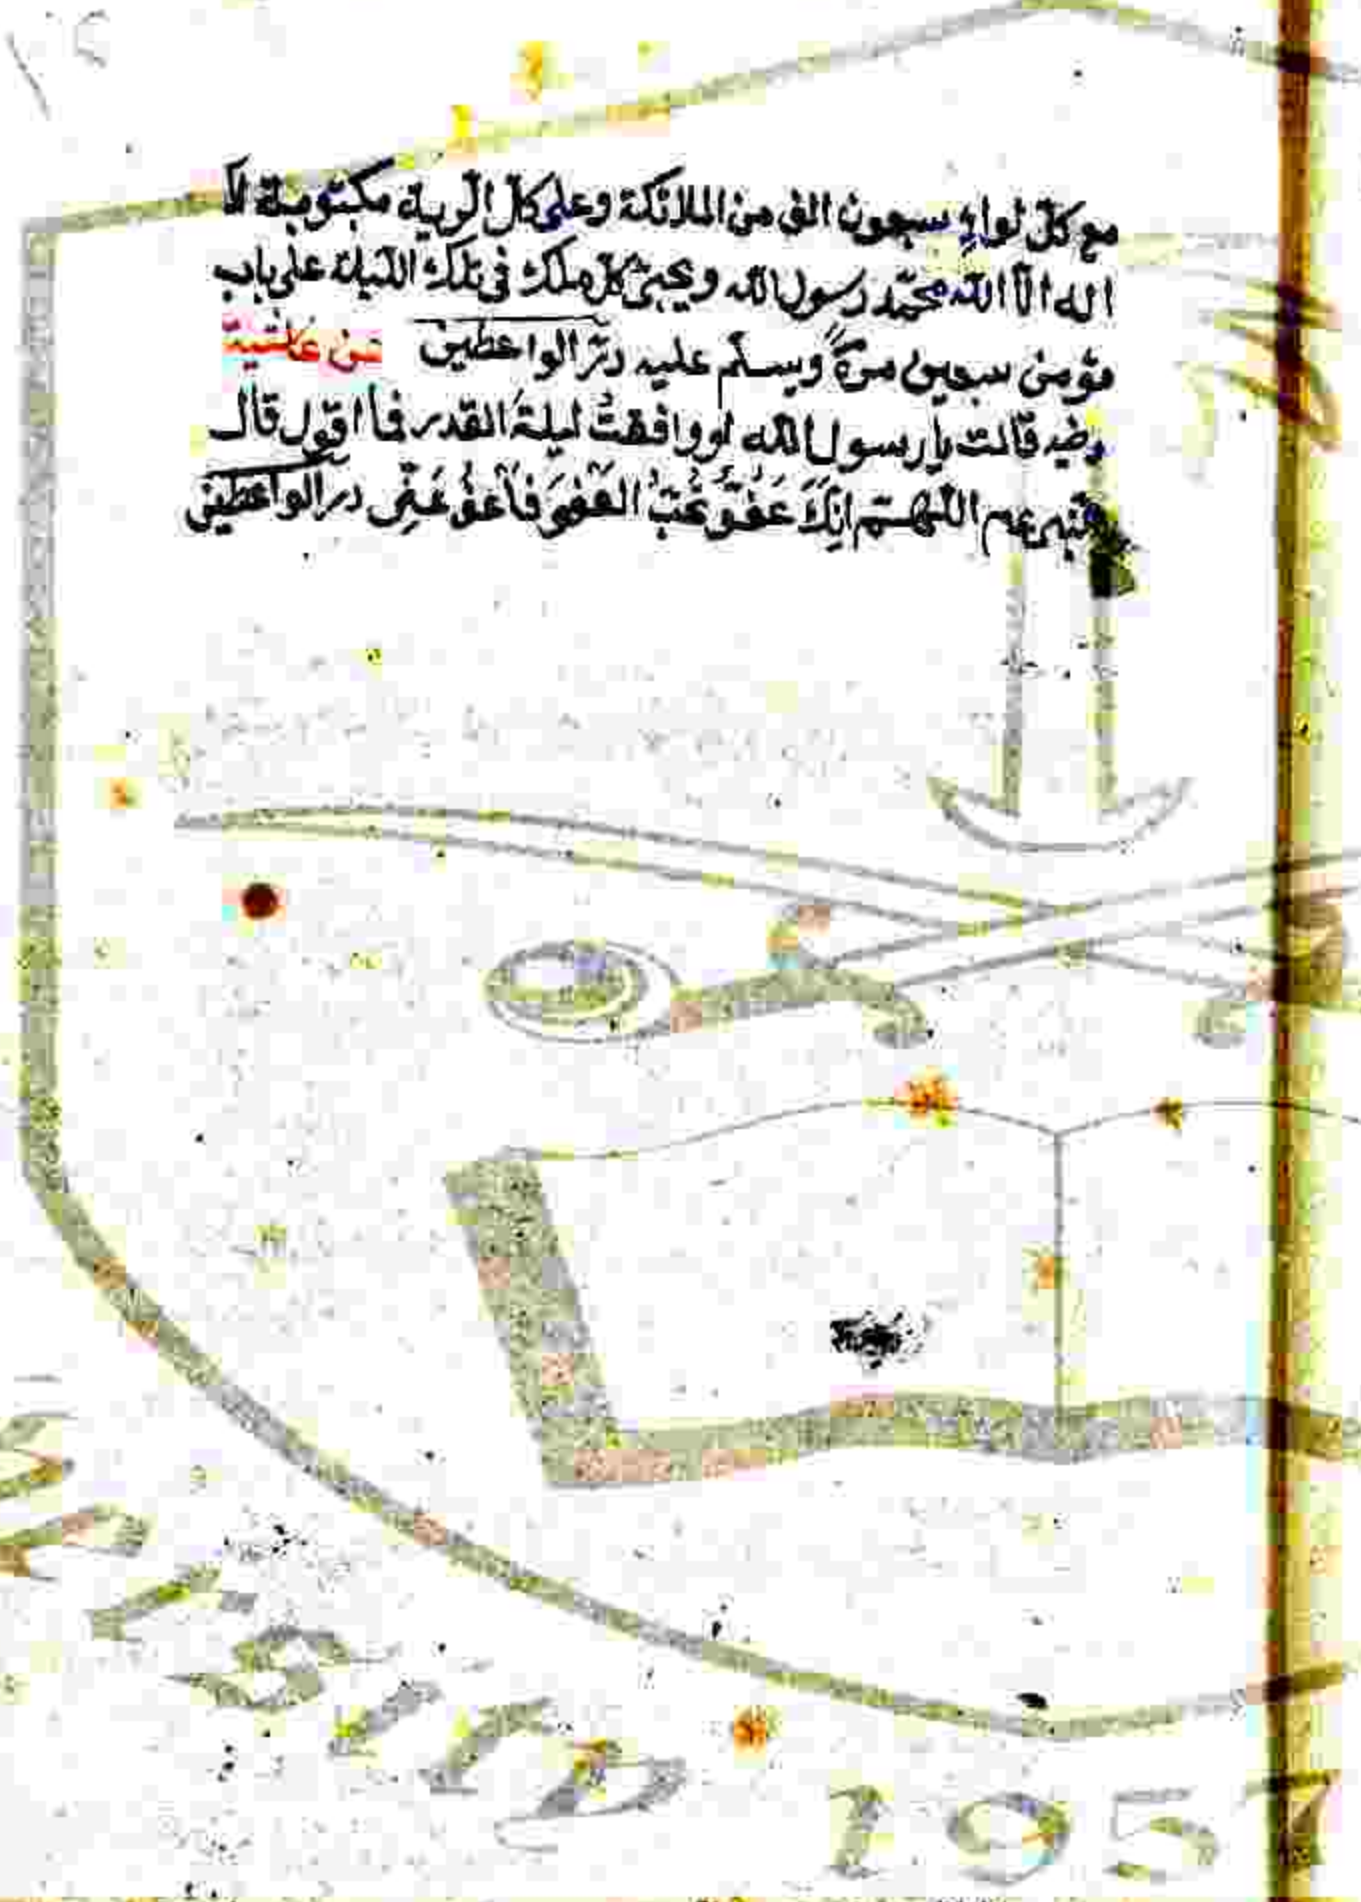 مع كل لواء سبعون الف من الملائكة وعلى كل الرية مكتوبة لا
اله الا الله محمد رسول الله ويجئ كل ملك فى تلك الليلة على باب
مؤمن سبعين مرة ويسلم عليه در الواعظين عن عائشة
رضيه قالت يا رسول الله لو وافقت ليلة القدر فما اقول قال
اللهم اِنَّكَ عَفُوٌّ تُحِبُّ العَفْوَ فَاَعْفُ عَنِّى در الواعظين
1957